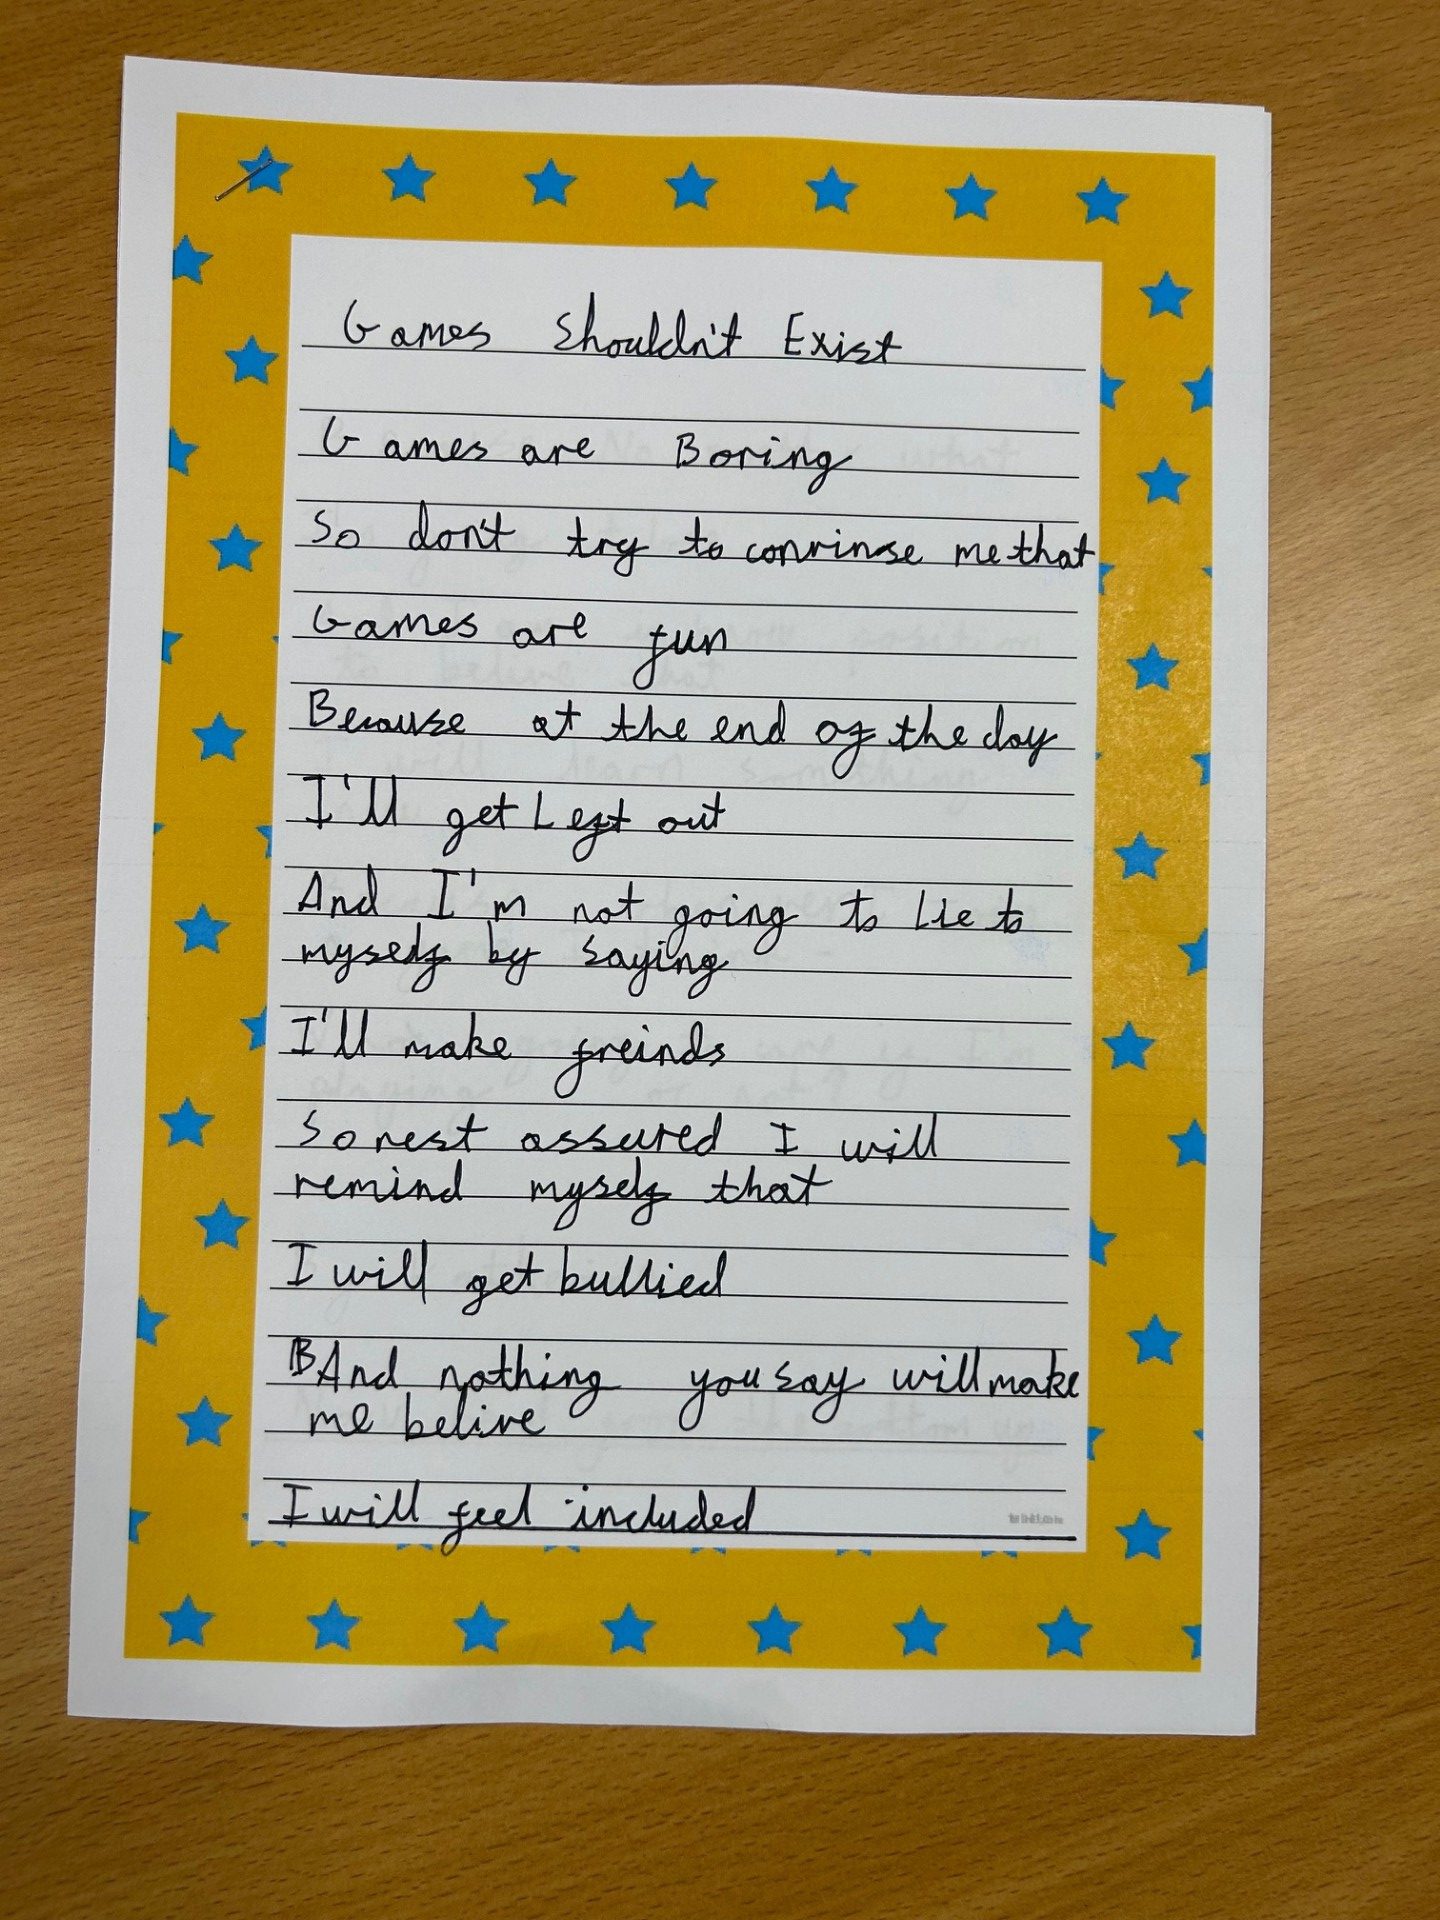 Games Shouldn't Exist
Games are Boring
So don't try to convinse me that
Games are fun
Because at the end of the day
I'll get Left out
And I'm not going to Lie to
myself by saying
I'll make freinds
So rest assured I will
remind myself that
I will get bullied
And nothing you say will make
me belive
I will feel included